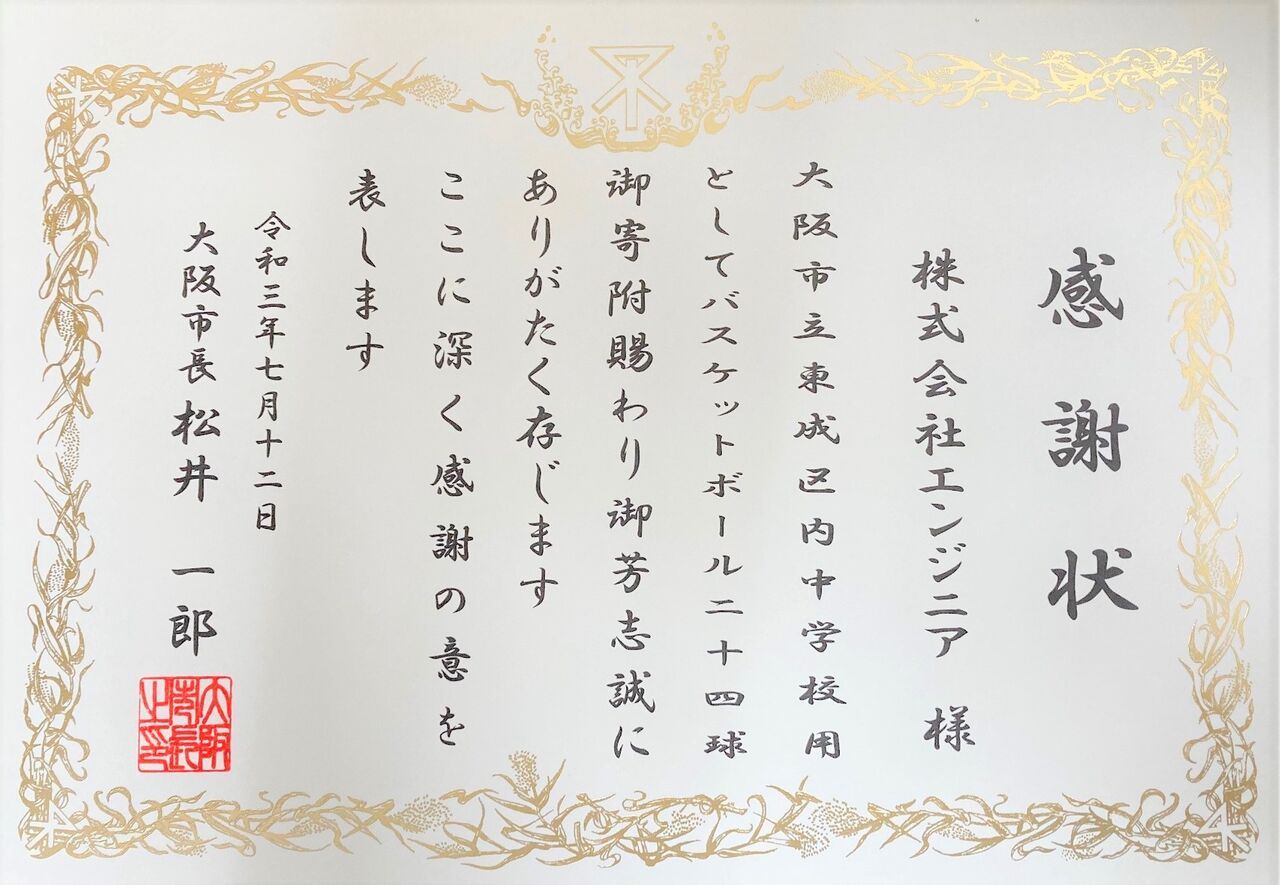 感謝状
株式会社エンジニア 様
大阪市立東成区内中学校用
としてバスケットボール二十四球
御寄附賜わり御芳志誠に
ありがたく存じます
ここに深く感謝の意を
表します
令和三年七月十二日
大阪市長 松井 一郎
大阪市長之印